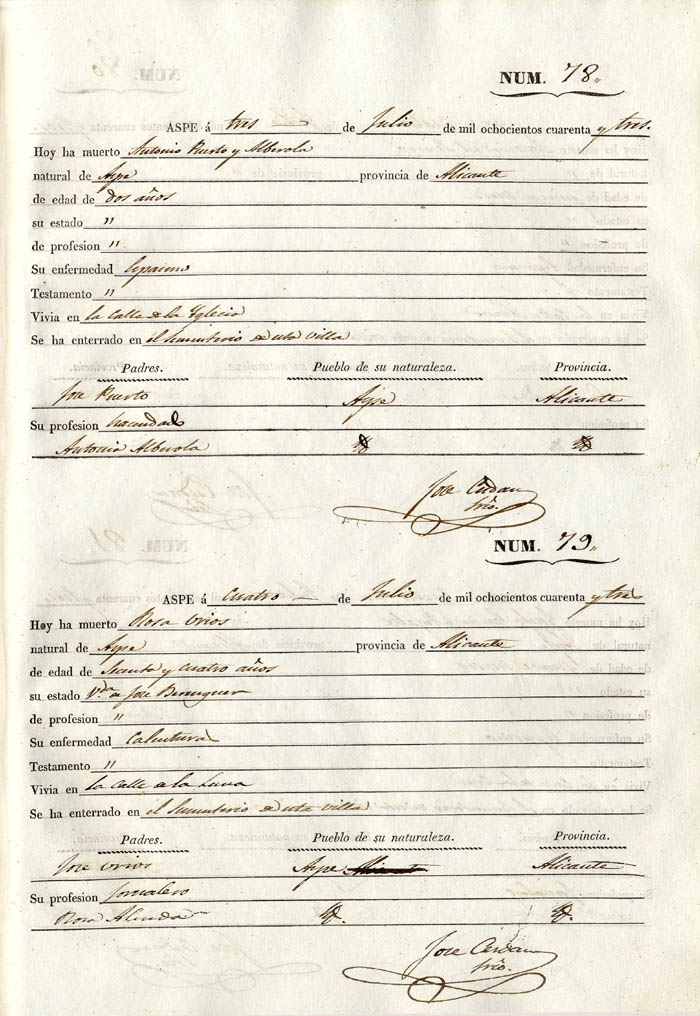 NUM. 78.,
ASPE á tres de Julio de mil ochocientos cuarenta y tres.
Hoy ha muerto Antonio Puerto y Alberola
natural de Aspe provincia de Alicante
de edad de dos años
su estado "
de profesion "
Su enfermedad Espasmo
Testamento "
Vivia en la Calle de la Yglecia
Se ha enterrado en el Sementerio de esta Villa
Padres. Pueblo de su naturaleza. Provincia.
Jose Puerto Aspe Alicante
Su profesion hacendado
Antonia Alberola
Jose Cerdan
Srio.
NUM. 79.,
ASPE á Cuatro de Julio de mil ochocientos cuarenta y tres
Hoy ha muerto Rosa Orios
natural de Aspe provincia de Alicante
de edad de Secenta y Cuatro años
su estado V.da de Jose Berenguer
de profesion "
Su enfermedad Calentura
Testamento "
Vivia en la Calle de la Luna
Se ha enterrado en el Sementerio de esta Villa
Padres. Pueblo de su naturaleza. Provincia.
Jose Orios Aspe Alicante
Su profesion Jornalero
Rosa
Jose Cerdan
Srio.